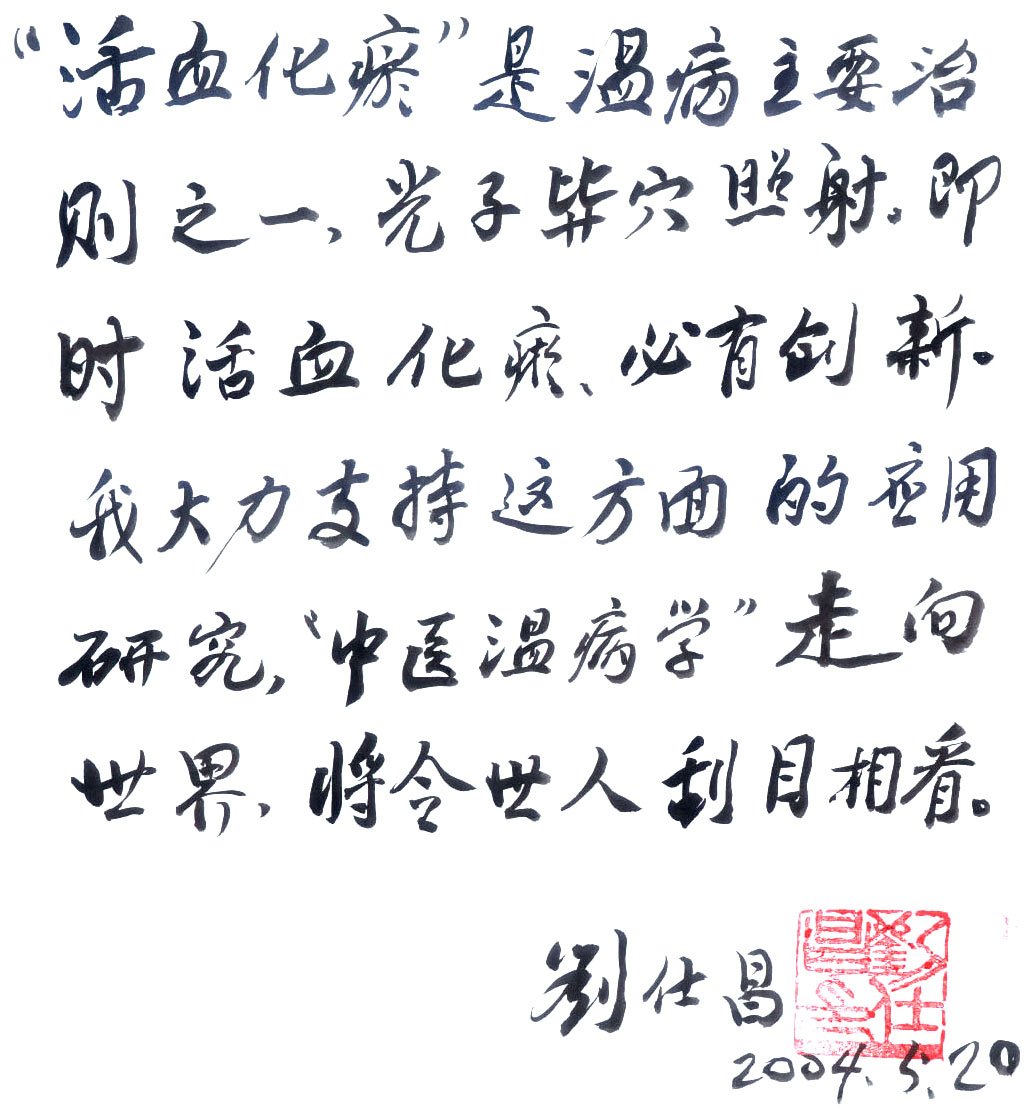 “活血化瘀”是温病主要治
则之一、光子毕穴照射。即
时活血化瘀、必有创新。
我大力支持这方面的应用
研究,“中医温病学”走向
世界、将令世人刮目相看。
劉仕昌
劉仕昌印
2004.5.20